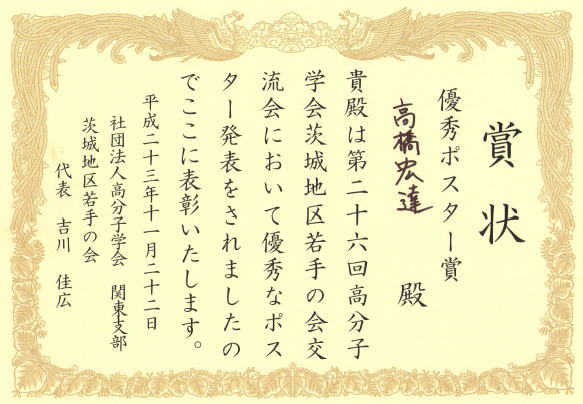 賞状
優秀ポスター賞
高橋宏達 殿
貴殿は第二十六回高分子
学会茨城地区若手の会交
流会において優秀なポス
ター発表をされましたの
でここに表彰いたします。
平成二十三年十一月二十二日
社団法人高分子学会 関東支部
茨城地区若手の会
代表 吉川 佳広